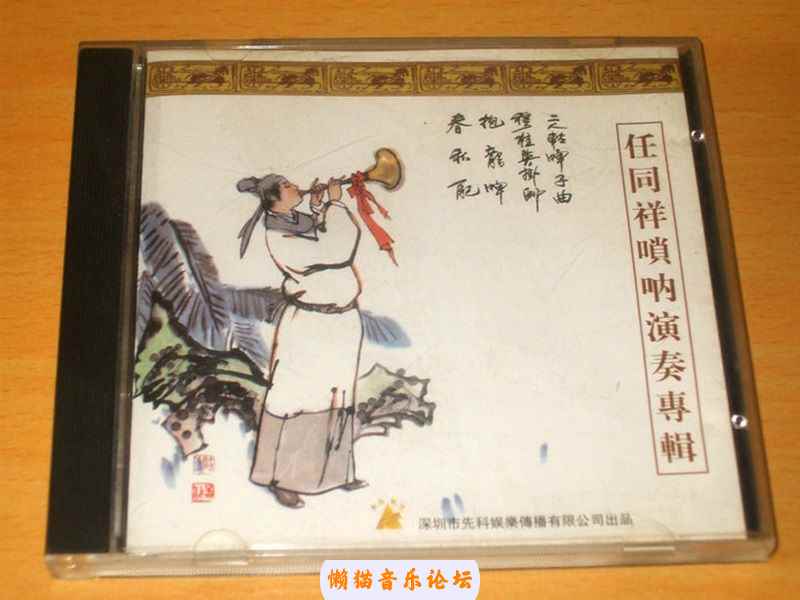 任同祥嗩吶演奏專輯
二人轉牌子曲
穆桂英掛帥
抱龍牌
春秋配
深圳市先科娛樂傳播有限公司出品
懒猫音乐论坛